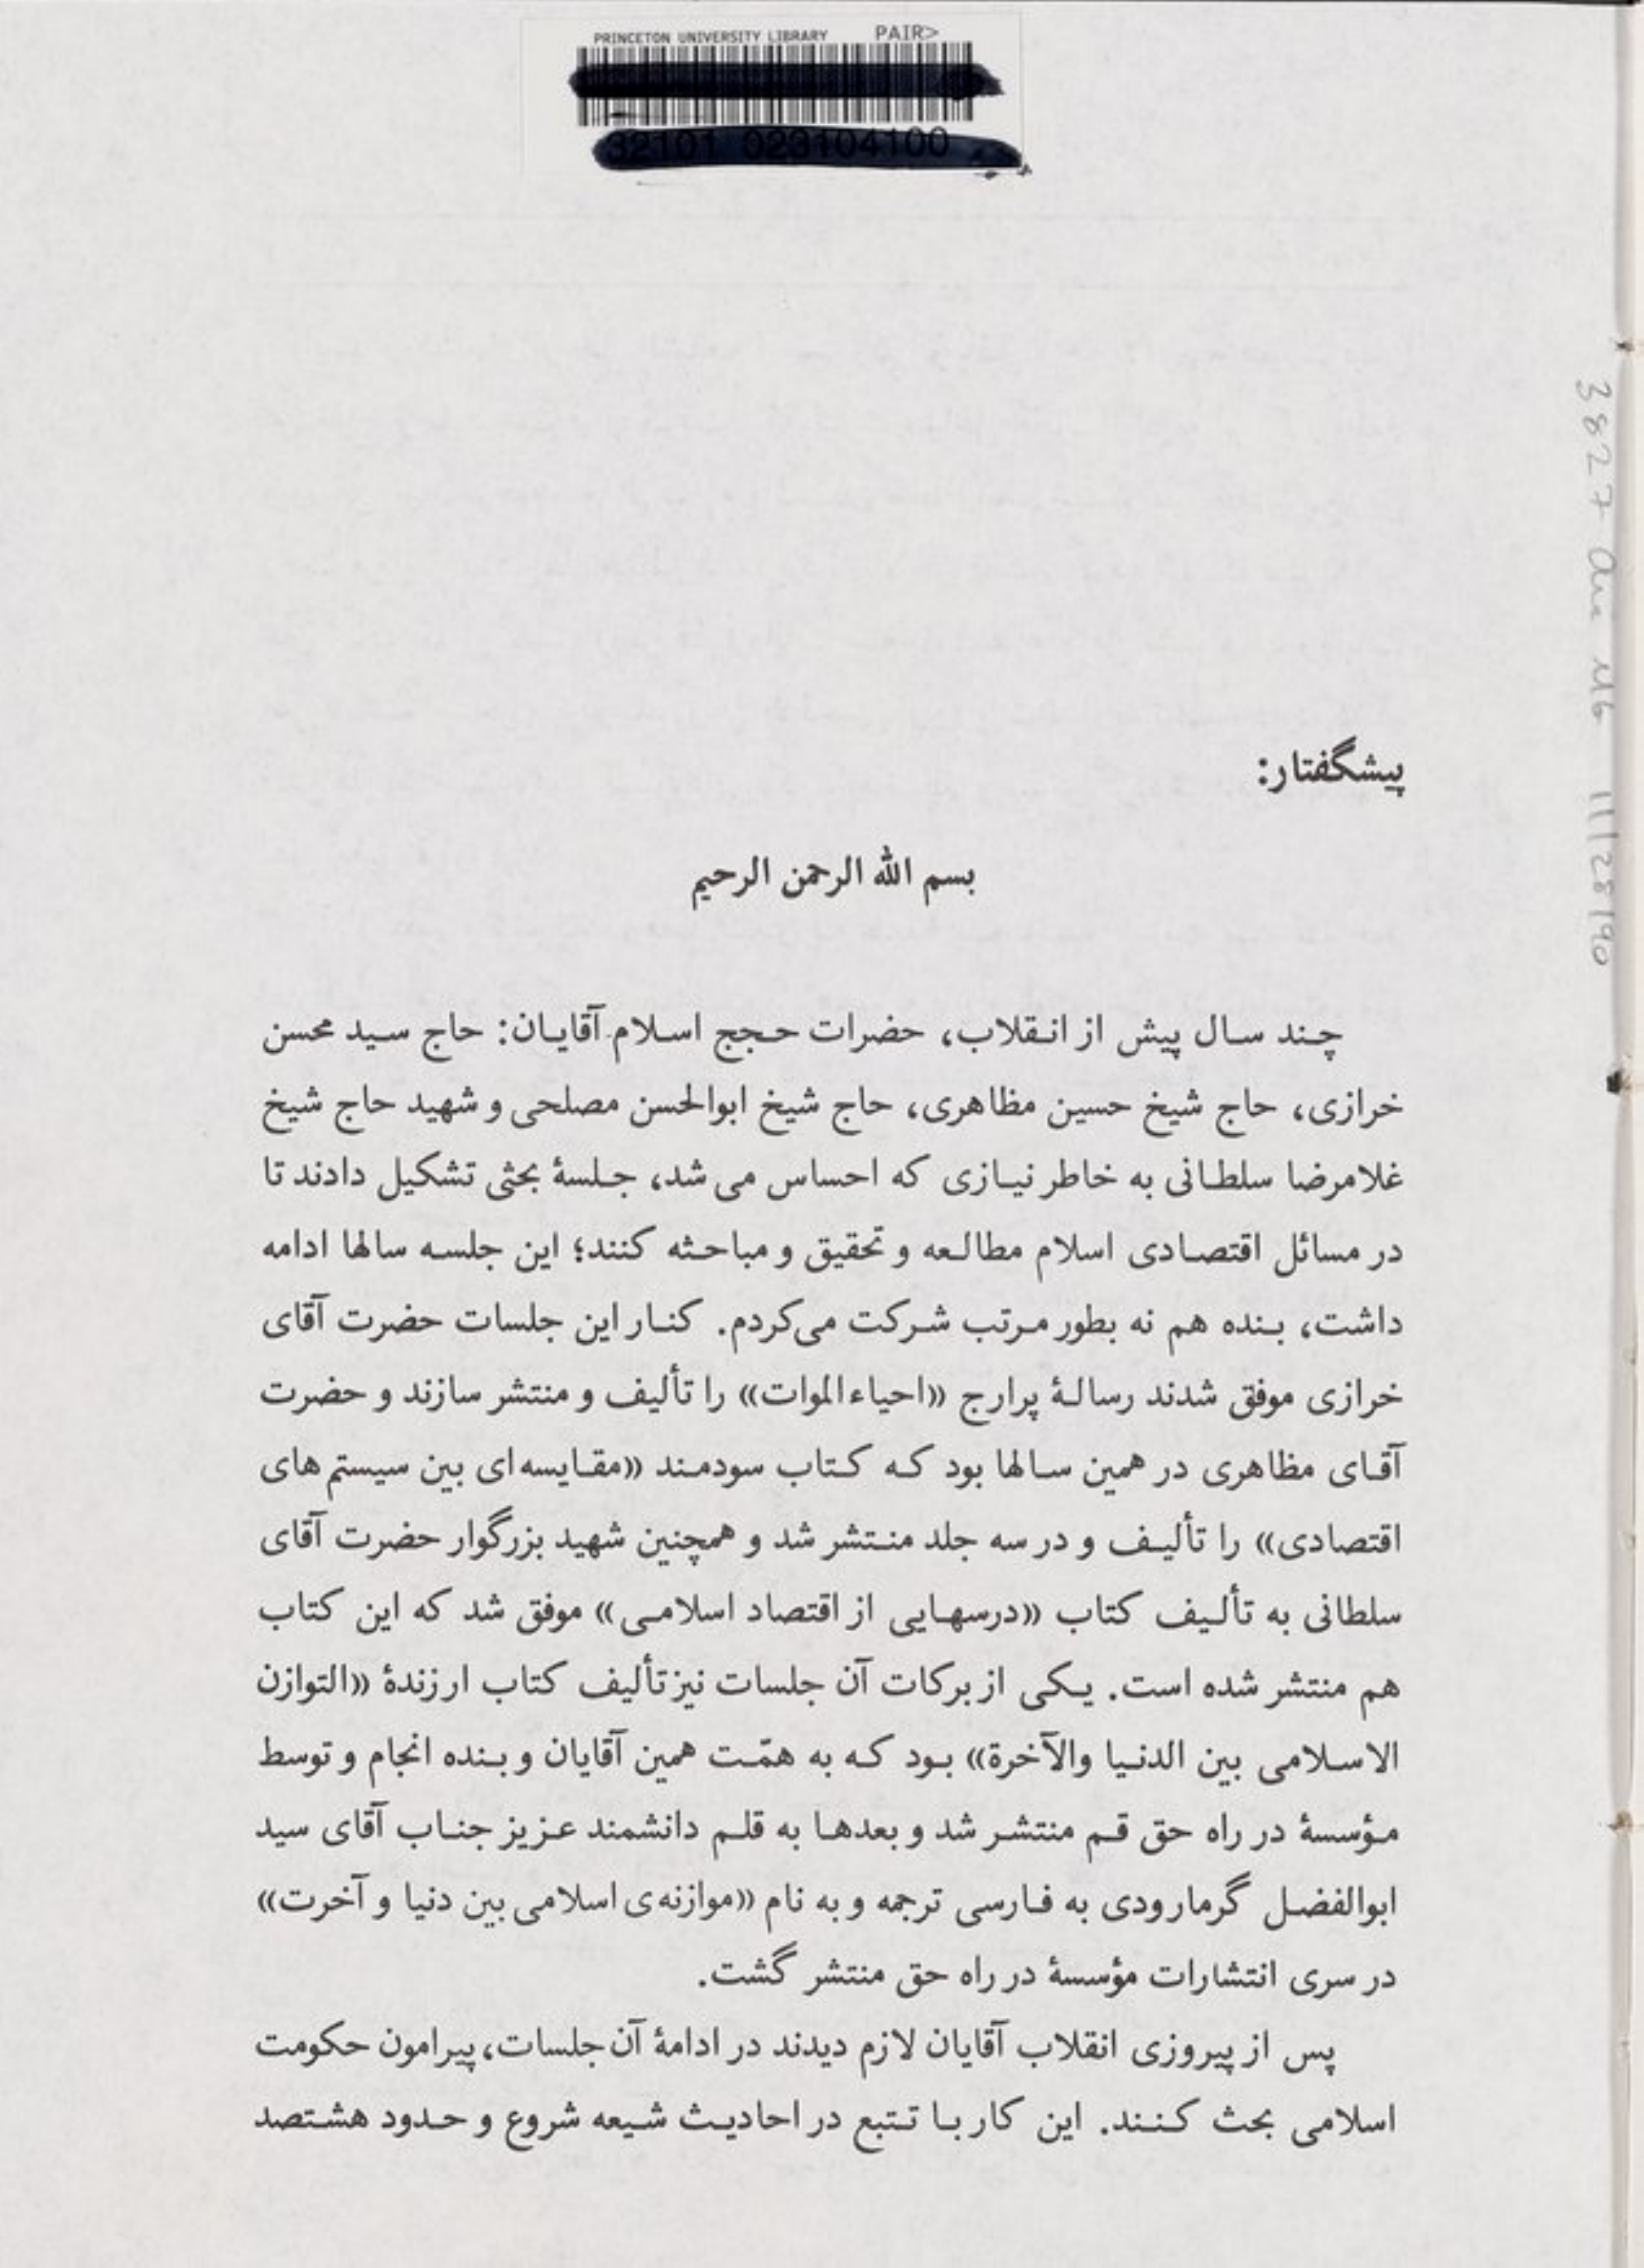 PRINCETON UNIVERSITY LIBRARY PAIR>
32101 023104100
پیشگفتار:
بسم الله الرحمن الرحیم
چند سال پیش از انقلاب، حضرات حجج اسلام آقایان: حاج سید محسن
خرازی، حاج شیخ حسین مظاهری، حاج شیخ ابوالحسن مصلحی و شهید حاج شیخ
غلامرضا سلطانی به خاطر نیازی که احساس می‌شد، جلسهٔ بحثی تشکیل دادند تا
در مسائل اقتصادی اسلام مطالعه و تحقیق و مباحثه کنند؛ این جلسه سالها ادامه
داشت، بنده هم نه بطور مرتب شرکت می‌کردم. کنار این جلسات حضرت آقای
خرازی موفق شدند رسالهٔ پرارج «احیاء الموات» را تألیف و منتشر سازند و حضرت
آقای مظاهری در همین سالها بود که کتاب سودمند «مقایسه‌ای بین سیستم‌های
اقتصادی» را تألیف و در سه جلد منتشر شد و همچنین شهید بزرگوار حضرت آقای
سلطانی به تألیف کتاب «درسهایی از اقتصاد اسلامی» موفق شد که این کتاب
هم منتشر شده است. یکی از برکات آن جلسات نیز تألیف کتاب ارزندهٔ «التوازن
الاسلامی بین الدنیا والآخرة» بود که به همّت همین آقایان و بنده انجام و توسط
مؤسسهٔ در راه حق قم منتشر شد و بعدها به قلم دانشمند عزیز جناب آقای سید
ابوالفضل گرمارودی به فارسی ترجمه و به نام «موازنه‌ی اسلامی بین دنیا و آخرت»
در سری انتشارات مؤسسهٔ در راه حق منتشر گشت.
پس از پیروزی انقلاب آقایان لازم دیدند در ادامهٔ آن جلسات، پیرامون حکومت
اسلامی بحث کنند. این کار با تتبع در احادیث شیعه شروع و حدود هشتصد